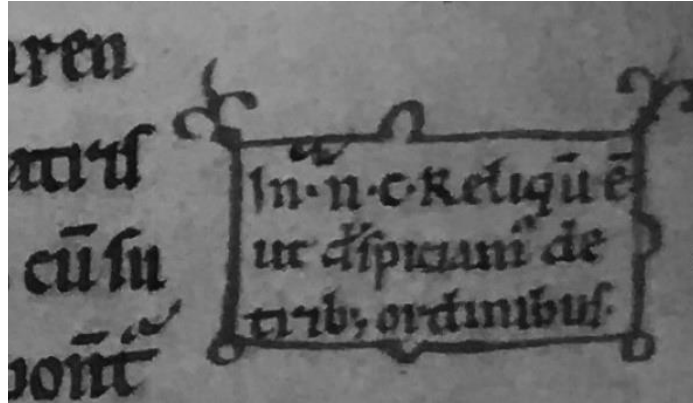 ren
atris
cū su
In·n̄·c·Reliqū ē
ut dͥspiciamꝰ de
trib; ordinibus.